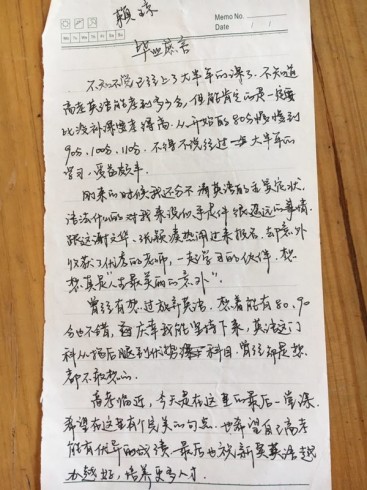 赖琼
Memo No.
Date / /
Mo Tu We Th Fr Sa Su
毕业感言
不知不觉已经上了大半年的课了。不知道
高考英语能考到多少分，但能肯定的是一定要
比没补课时考得高。从一开始的80分慢慢到
90分、100分、110分。不得不说经过一大半年的
学习，受益颇丰。
刚来的时候我还分不清英语的主宾定状，
语法什么的对我来说似乎是件很遥远的事情。
跟这谢文华、张颖凑热闹过来报名。却意外
收获了优秀的老师，一起学习的伙伴。想
想真是"人生最美丽的意外"。
曾经有想过放弃英语。想着能有80、90
分也不错，很庆幸我能坚持下来，英语这门
科从拖后腿到优势科目，曾经却是想
都不敢想的。
高考临近，今天是在这里的最后一堂课。
希望在这里有个完美的句点。也希望自己高考
能有优异的成绩。最后也祝新昊英语越
办越好，培养更多人才。